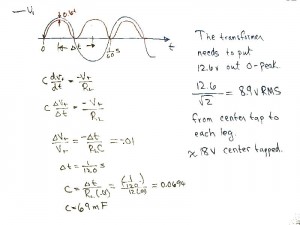 V₁
0
Δt
1/60 s
t
C dVr/dt = -Vr/RL
C ΔVr/Δt = -Vr/RL
ΔVr/Vr = -Δt/RLC = -.01
Δt = 1/120 s
C = Δt/RL(.01) = (1/120)/12(.01) = 0.0694
C = 69 mF
The transformer
needs to put
12.6v out 0-peak.
12.6/√2 = 8.9v RMS
from center tap to
each leg.
18V center tapped.